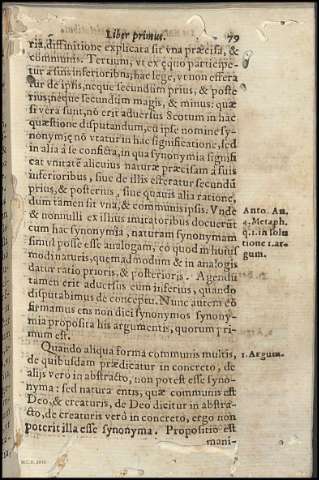 Liber primus. 79
ria, diffinitione explicata sit vna præcisa, &
communis. Tertium, vt ex ęquo participe-
tur a suis inferioribus, hac lege, vt non effera
tur de ipsis, neque secundũm prius, & poste
rius, neque secundum magis, & minus: quæ
si vera sunt, nõ erit adversus Scotum in hac
quæstione disputandum, eò ipse nomine sy-
nonymię nõ vtatur in hac significatione, sed
in alia à se conficta, in qua synonymia signifi
cat vnitatẽ alicuius naturæ præcisam à suis
inferioribus, siue de illis efferatur secundũ
prius, & posterius, siue quauis alia ratione,
dum tamen sit vna, & communis ipsis. Vnde
& nonnulli ex illius imitatoribus docuerũt
cum hac synonymia, naturam synonymam
simul posse esse analogam, eò quod in huius
modi naturis, quemadmodum & in analogis
datur ratio prioris, & posterioris. Agendũ
tamen erit adversus eum inferius, quando
disputabimus de conceptu. Nunc autem cõ
firmamus ens non dici synonymos synony-
mia proposita his argumentis, quorum pri-
mum est.
Anto. An.
4. Metaph.
q. 1. in solu
tione 1. ar-
gum.
Quando aliqua forma communis multis,
de quibusdam prædicatur in concreto, de
alijs verò in abstracto, non potest esse syno-
nyma: sed natura entis, quæ communis est
Deo, & creaturis, de Deo dicitur in abstra-
cto, de creaturis verò in concreto, ergo non
poterit illa esse synonyma. Propositio est
1. Argum.
mani-